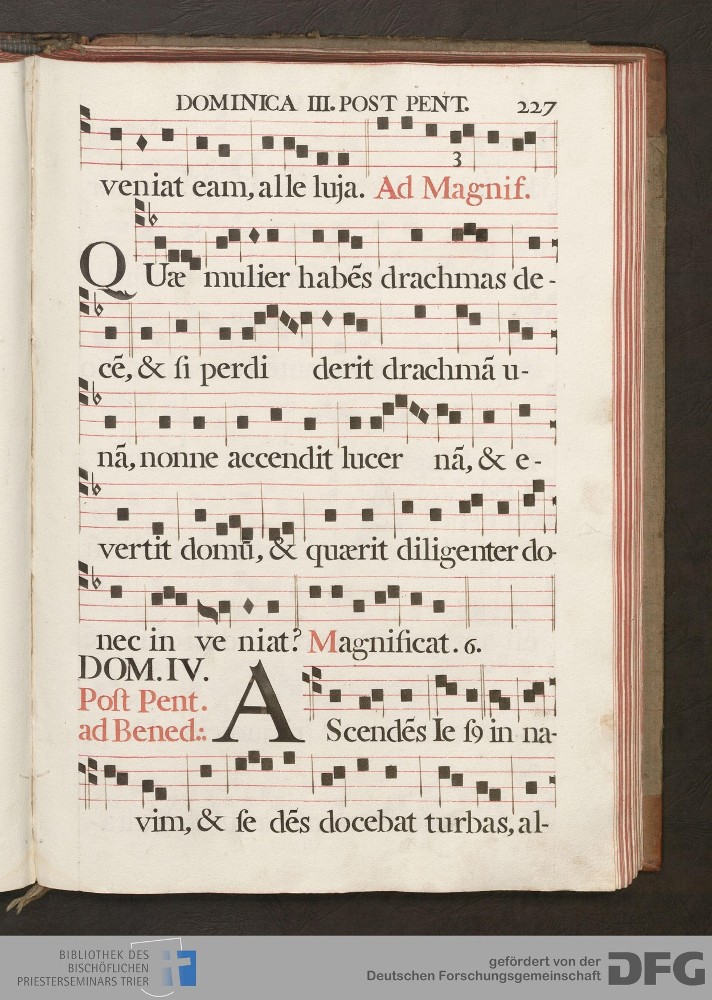 DOMINICA III. POST PENT. 227
3
veniat eam, alle luja. Ad Magnif.
QUæ mulier habẽs drachmas de-
cẽ, & ſi perdi derit drachmã u-
nã, nonne accendit lucer nã, & e-
vertit domũ, & quærit diligenter do-
nec in ve niat? Magnificat. 6.
DOM. IV.
Poſt Pent.
ad Bened.:
AScendẽs Ie ſꝯ in na-
vim, & ſe dẽs docebat turbas, al-
BIBLIOTHEK DES
BISCHÖFLICHEN
PRIESTERSEMINARS TRIER
gefördert von der
Deutschen Forschungsgemeinschaft
DFG